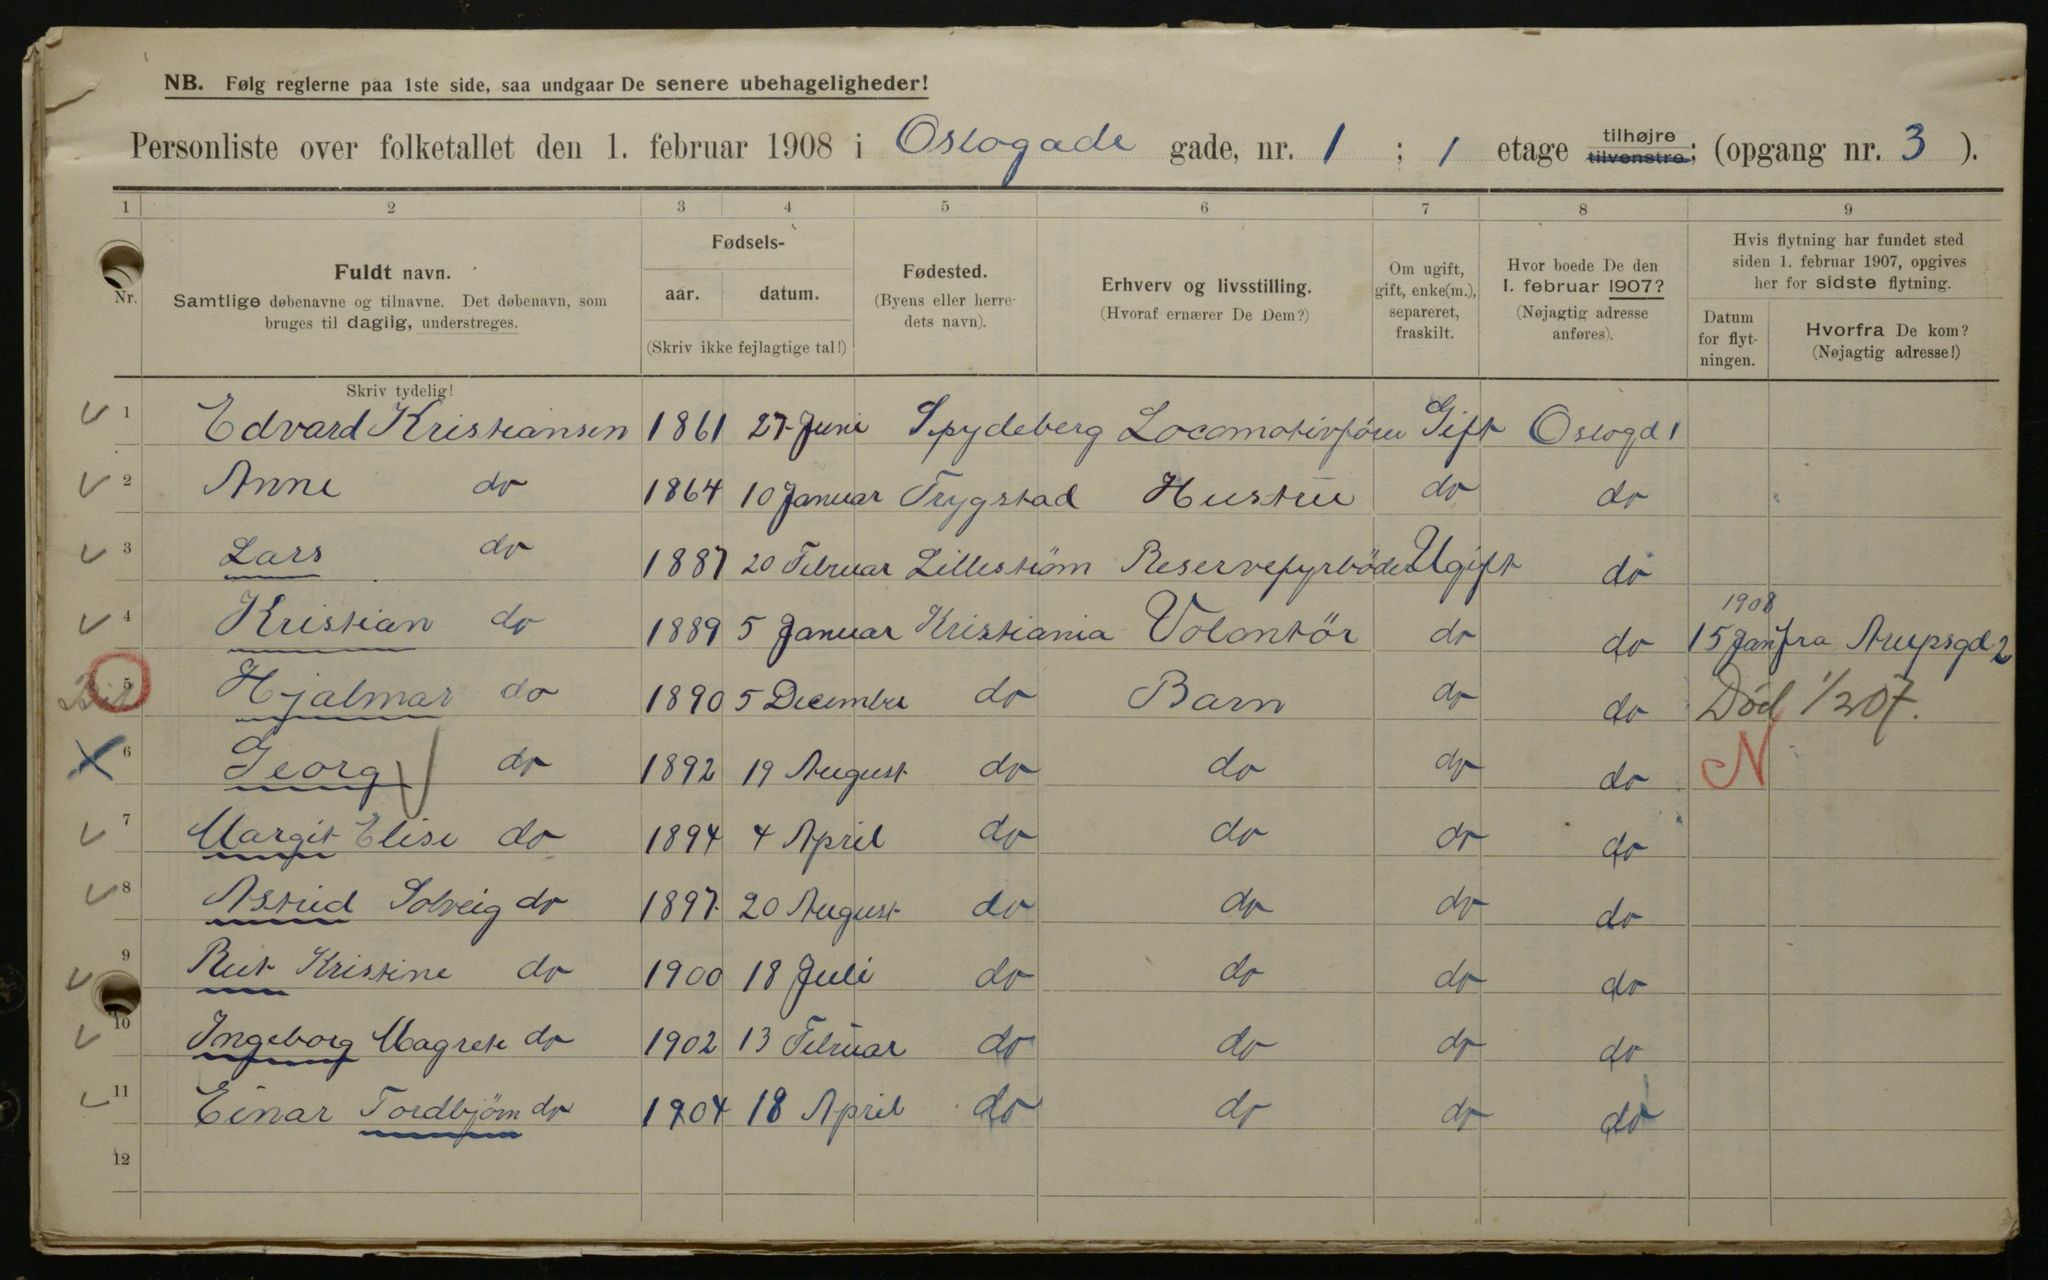 NB. Følg reglerne paa 1ste side, saa undgaar De senere ubehageligheder!
Personliste over folketallet den 1. februar 1908 i Oslogade gade, nr. 1 ; 1 etage tilhøjre tilvenstre; (opgang nr. 3 ).
1 2 3 4 5 6 7 8 9
Nr.
Fuldt navn.
Samtlige døbenavne og tilnavne. Det døbenavn, som
bruges til daglig, understreges.
Fødsels-
aar. datum.
(Skriv ikke fejlagtige tal!)
Fødested.
(Byens eller herre-
dets navn).
Erhverv og livsstilling.
(Hvoraf ernærer De Dem?)
Om ugift,
gift, enke(m.),
separeret,
fraskilt.
Hvor boede De den
1. februar 1907?
(Nøjagtig adresse
anføres).
Hvis flytning har fundet sted
siden 1. februar 1907, opgives
her for sidste flytning.
Datum
for flyt-
ningen.
Hvorfra De kom?
(Nøjagtig adresse!)
Skriv tydelig!
1 Edvard Kristiansen 1861 27 Juni Spydeberg Locomotivförer Gift Oslogd 1
2 Anne do 1864 10 Januar Trygstad Hustru do do
3 Lars do 1887 20 Februar Lilleström Reservefyrböder Ugift do
1908
4 Kristian do 1889 5 Januar Kristiania Volontör do do 15 Jan fra Arupsgd 2
5 Hjalmar do 1890 5 Decembre do Barn do do Död 1/2 07.
6 Georg do 1892 19 August do do do do N
7 Margit Elise do 1894 4 April do do do do
8 Astrid Solveig do 1897 20 August do do do do
9 Rut Kristine do 1900 18 Juli do do do do
10 Ingeborg Magrete do 1902 13 Februar do do do do
11 Einar Tordbjörn do 1904 18 April do do do do
12